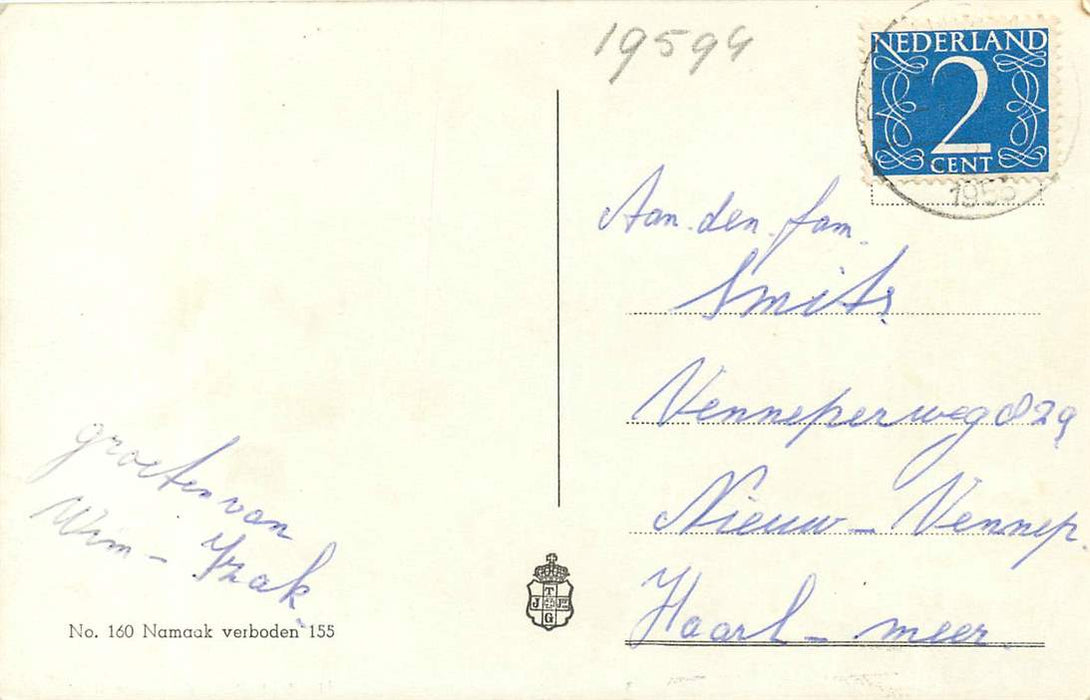 19594
NEDERLAND
2
CENT
Aan den fam.
Smits
Venneperweg 829
Nieuw-Vennep.
Haarl-meer.
groeten van
Wim - Izak
T
J JZ
G
No. 160 Namaak verboden 155